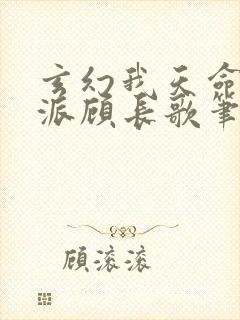 玄幻我天命
派顾长歌笔
顾滚滚